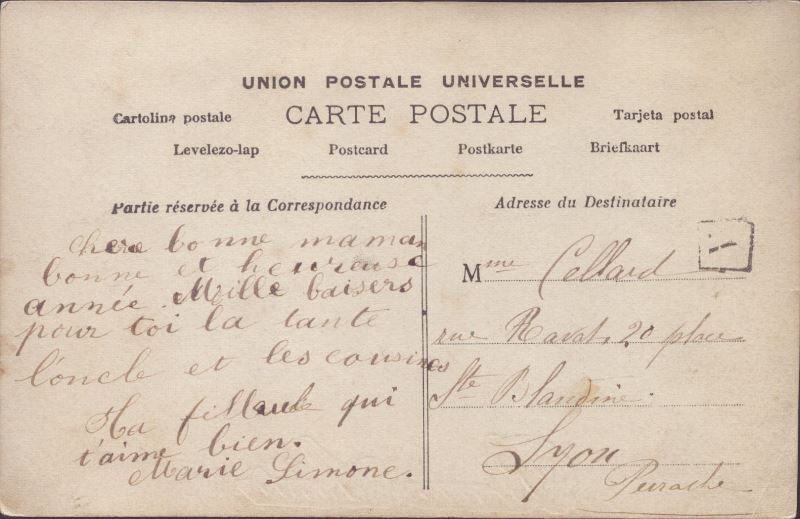 UNION POSTALE UNIVERSELLE
CARTE POSTALE
Cartolina postale
Tarjeta postal
Levelezo-lap
Postcard
Postkarte
Briefkaart
Partie réservée à la Correspondance
chere bonne maman
bonne et heureuse
année. Mille baisers
pour toi la tante
l'oncle et les cousines
Ta fillaule qui
t'aime bien.
Marie Simone.
Adresse du Destinataire
Mme Collard
rue Ravat, 20 place
Ste Blandine.
Lyon
Perrache